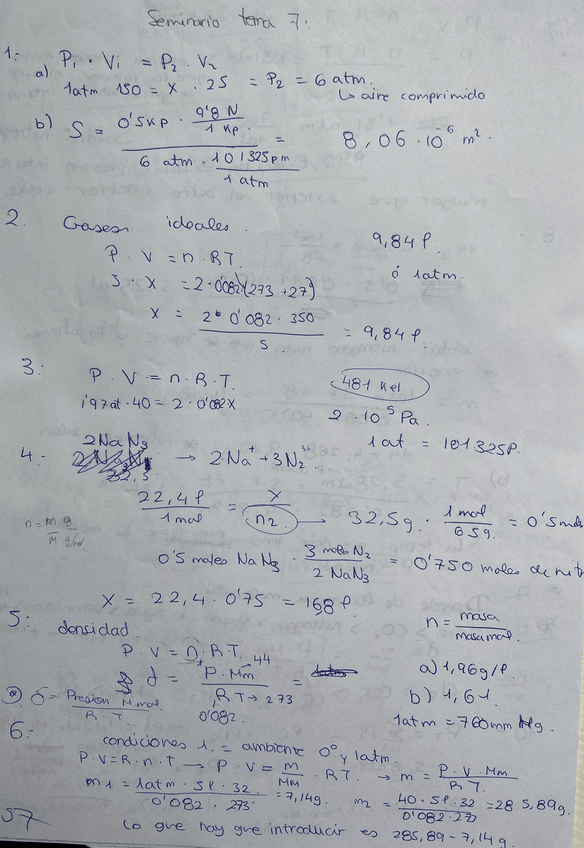 Seminario tema 7:
1:- a) P₁ · V₁ = P₂ V₂
1atm · 150 = X · 25 = P₂ = 6 atm.
↳ aire comprimido
b) S = 0'5kp · 9'8 N / 1 kp / 6 atm · 101325 / 1 atm = 8,06 · 10⁻⁶ m².
2. Gases ideales.
P · V = n · RT.
9,84 l.
ó 1atm.
5 · X = 2 · 0'082 (273 + 27)
X = 2 · 0'082 · 350 / 5 = 9,84 l.
3: P · V = n · R · T.
481 Kel
1'97at · 40 = 2 · 0'082X
2 · 10⁵ Pa.
1 at = 101325P.
4.- 2NaN₃ → 2Na⁺ + 3N₂
22,4 l / 1 mol = X / n₂ → 32,5g · 1 mol / 65g. = 0'5
n = m g / M g/mol
0'5 moles NaN₃ · 3 moles N₂ / 2 NaN₃ = 0'750 moles de
X = 22,4 · 0'75 = 168 l.
5: densidad
n = masa / masa mol.
P · V = n · R · T.
d = P · Mm / R T = 44
→ 273
0'082.
a) 1,96g/l.
b) 1,61
1atm = 760mm Hg.
d = Presion M.mol / R T
6:- condiciones 1. = ambiente 0° y 1atm.
P · V = R · n · T → P · V = m / MM · R T. → m = P · V · Mm / R T.
m1 = 1atm · 5l · 32 / 0'082 · 273 = 7,14g.
m₂ = 40 · 5l · 32 / 0'082 · 273 = 285,89g.
Lo que hay que introducir es 285,89 - 7,14 g.
57